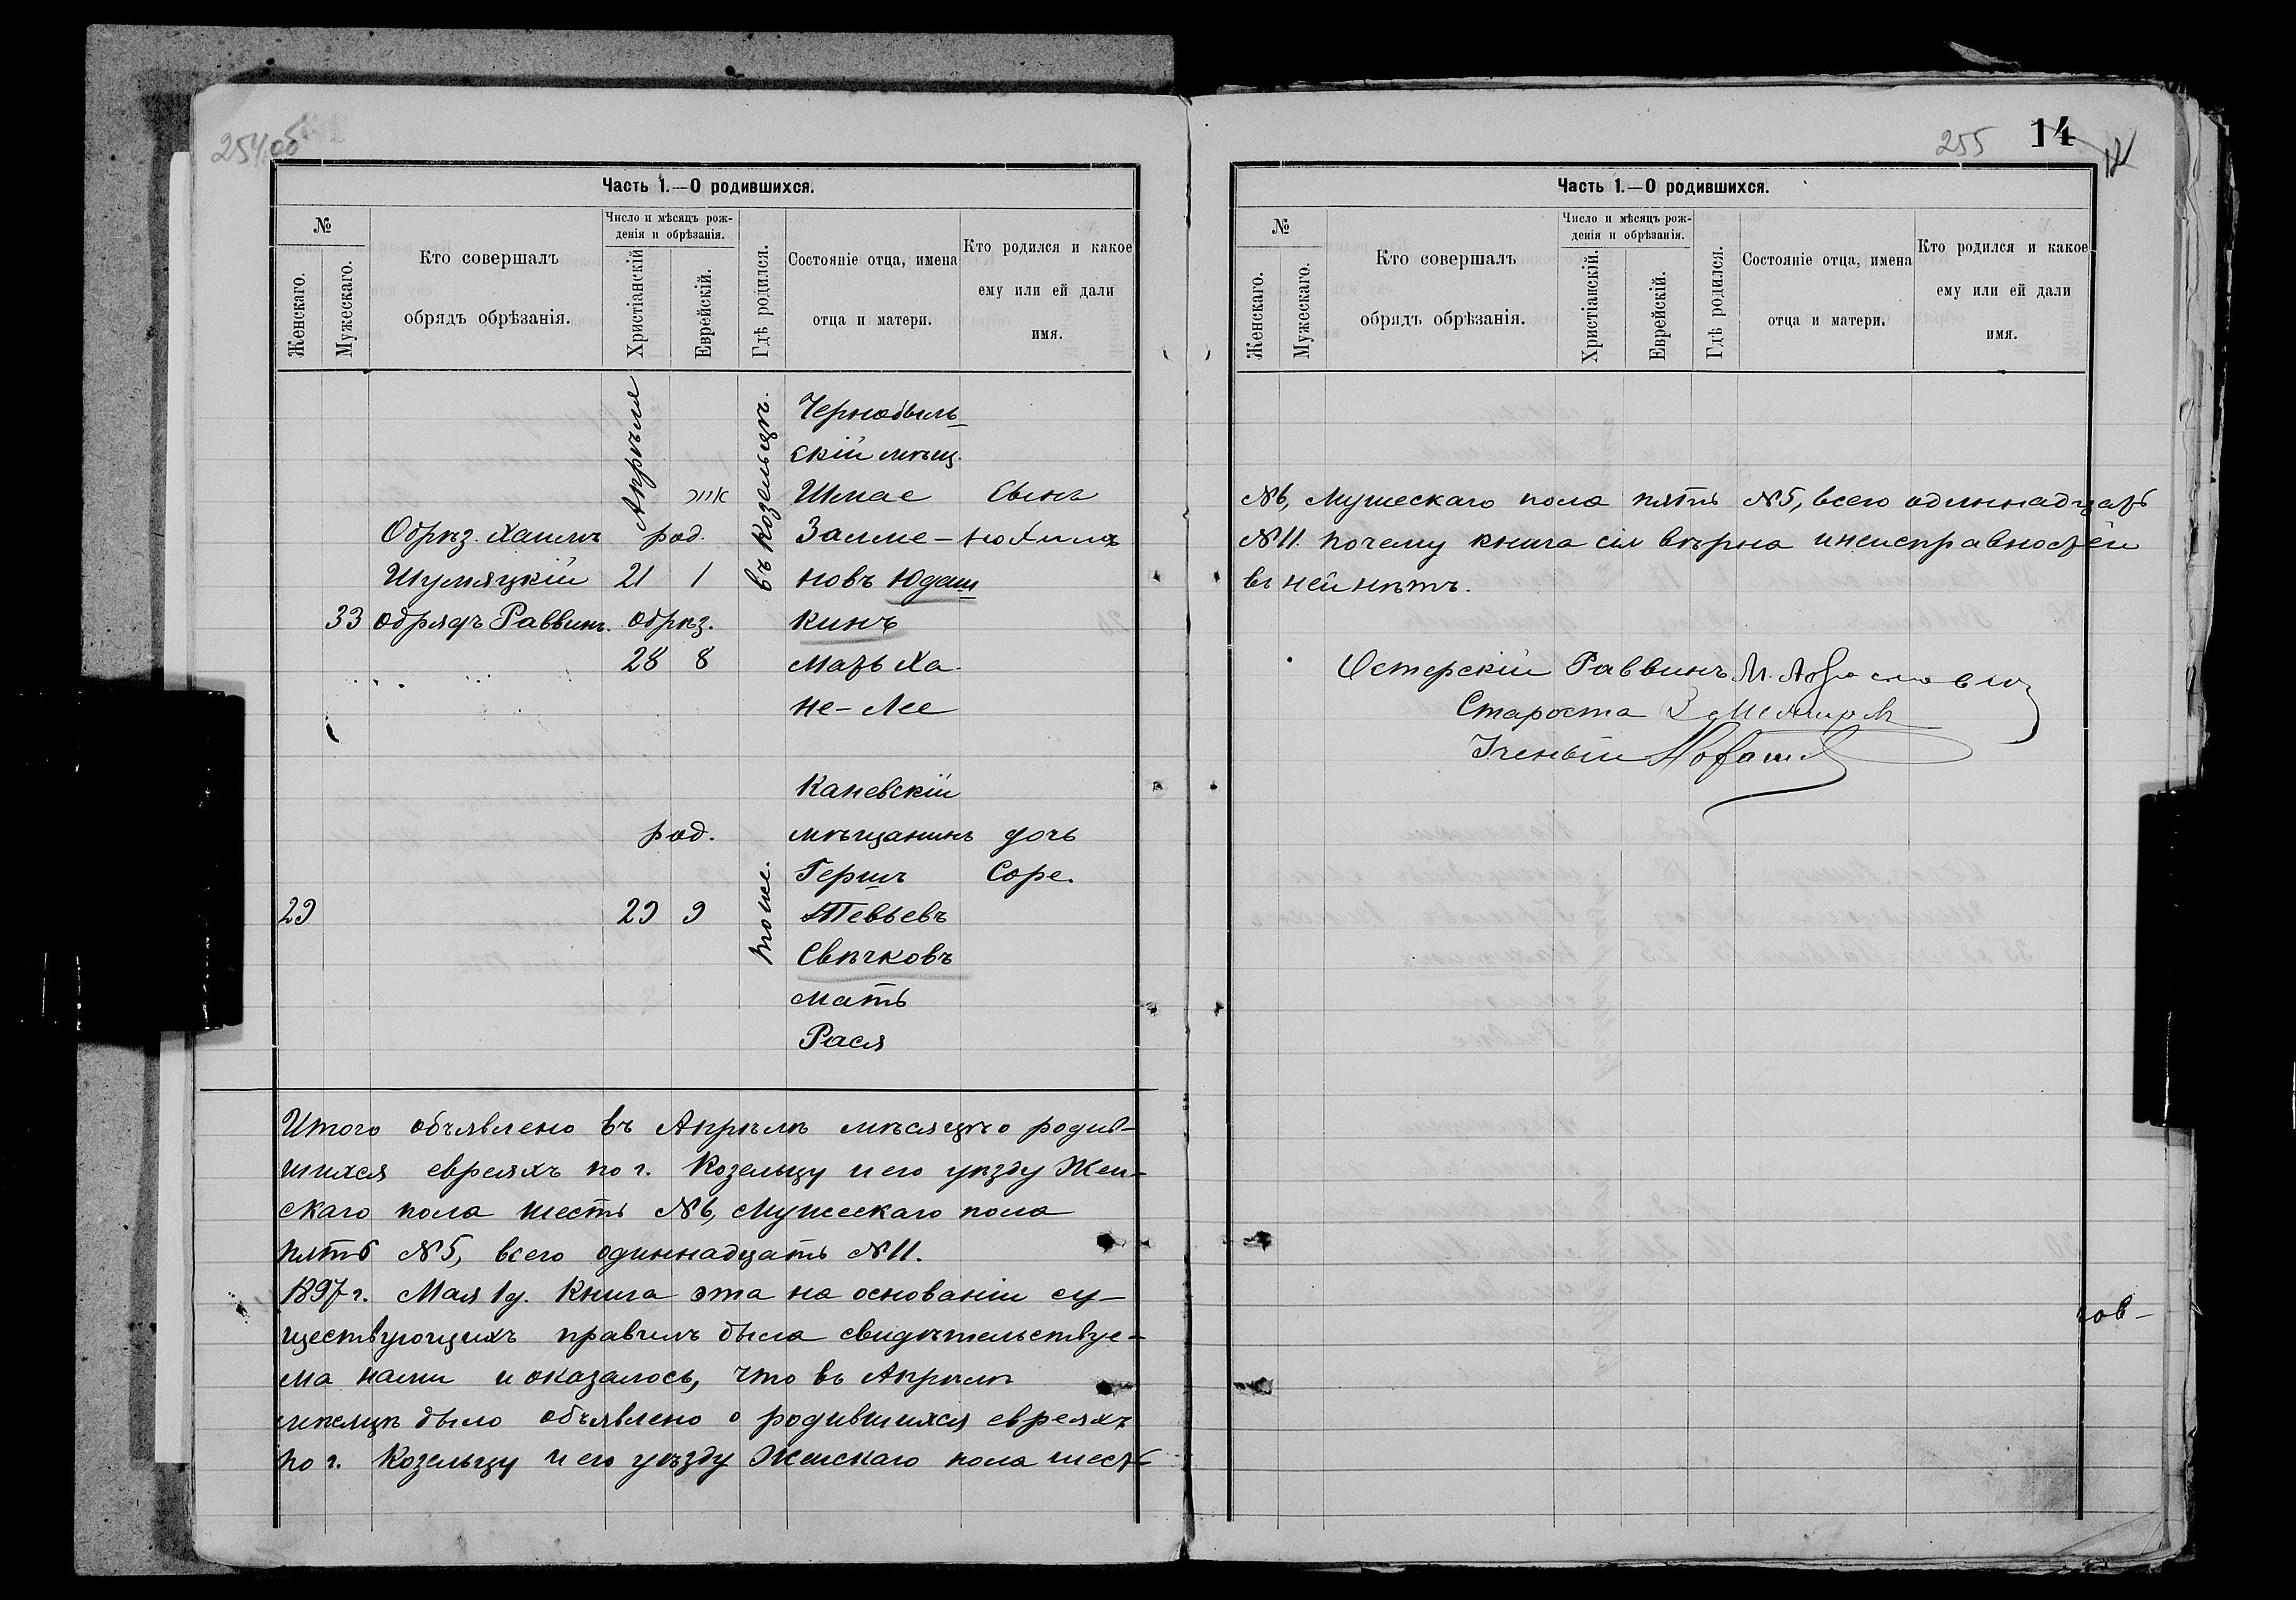 254об
Часть 1.—О родившихся.
№
Женскаго.
Мужескаго.
Кто совершалъ
обрядъ обрѣзанія.
Число и мѣсяцъ рож-
денія и обрѣзанія.
Христіанскій
Еврейскій.
Гдѣ родился.
Состояніе отца, имена
отца и матери.
Кто родился и какое
ему или ей дали
имя.
Апрѣля
въ Козельцѣ.
Чернобыль-
скій мѣщ.
Шмае Сынъ
Обрѣз. Хаимъ род. Залме-
Шумяцкій 21 1 новъ Юдаш
33 обрядъ Раввинъ. обрѣз. кинъ
28 8 мать Ха-
не-Лее
Каневскій
род. мѣщанинъ дочь
тоже. Гершъ Соре.
29 29 9 Тевьевъ
Свѣчковъ
мать
Рася
Итого объявлено въ Апрѣлѣ мѣсяцѣ о родив-
шихся евреяхъ по г. Козельцу и его уѣзду Жен-
скаго пола шесть №6, Мужескаго пола
пять №5, всего одиннадцать №11.
1897 г. Мая 1 д. Книга эта на основаніи су-
ществующихъ правилъ была свидѣтельствуе-
ма нами и оказалось, что въ Апрѣлѣ
мѣсяцѣ было объявлено о родившихся евреяхъ
по г. Козельцу и его уѣзду Женскаго пола шесть
255 14
Часть 1.—О родившихся.
№
Женскаго.
Мужескаго.
Кто совершалъ
обрядъ обрѣзанія.
Число и мѣсяцъ рож-
денія и обрѣзанія.
Христіанскій.
Еврейскій.
Гдѣ родился.
Состояніе отца, имена
отца и матери.
Кто родился и какое
ему или ей дали
имя.
№6, Мужескаго пола пять №5, всего одиннадцать
№11. почему книга сія вѣрна и неисправностей
въ ней нѣтъ.
Остерскій Раввинъ М.
Староста
Ученый